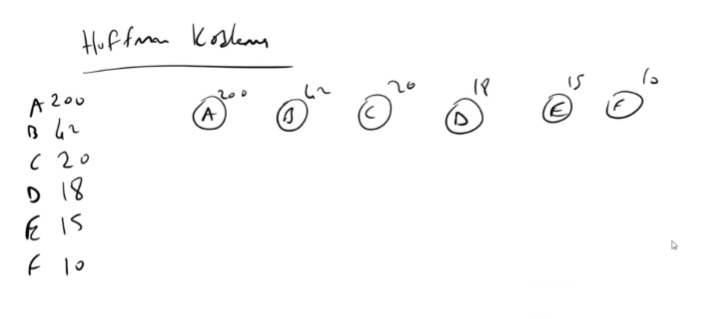 Huffman Kodlama
A 200
B 42
C 20
D 18
E 15
F 10
A 200 B 42 C 20 D 18 E 15 F 10